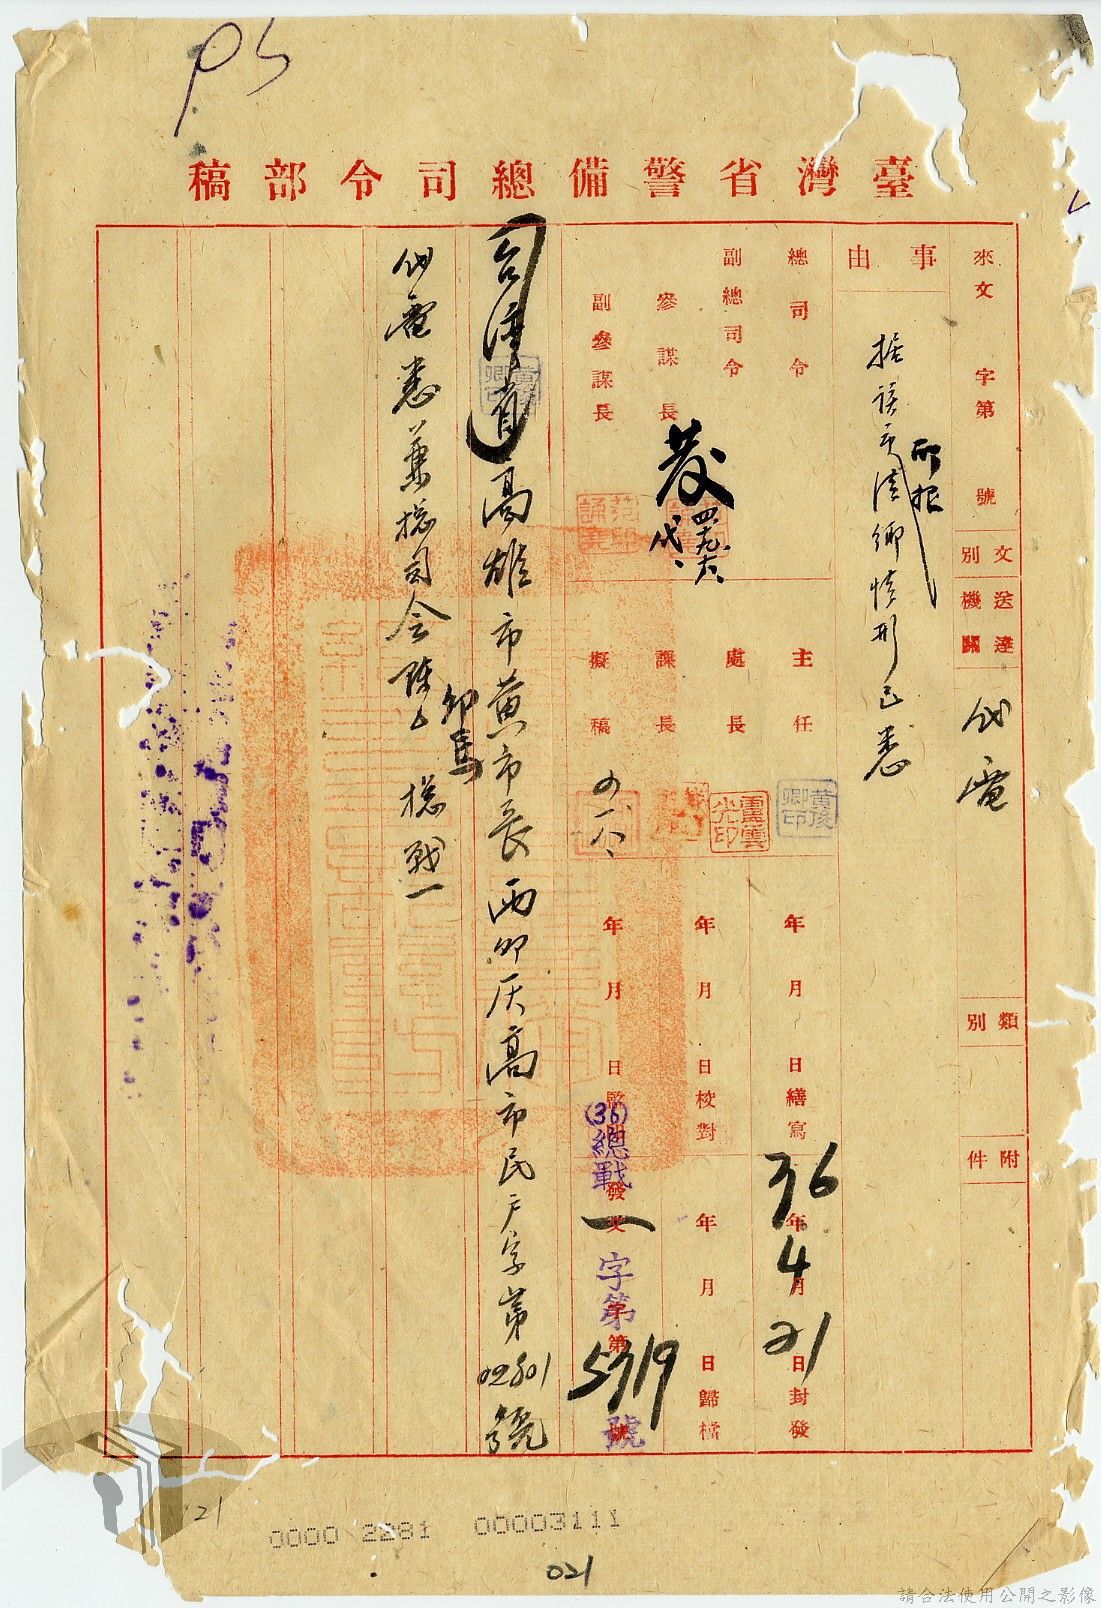 臺灣省警備總司令部稿
來文 字第 號
文別 代電
送達機關
類別
附件
事由
據該市清鄉情形已悉
總司令
副總司令
參謀長
副參謀長
發
四、十九、六、
代、
主任
處長
課長
擬稿
黃俊卿印
四、六、
年 月 日繕寫
年 月 日校對
年 月 日監印
36年4月21日封發
年 月 日歸檔
發文 字第 號
(36)總戰一字第5319號
台灣省高雄市黃市長
高市民戶字第02801號
代電悉兼總司令陳
卯馬
總戰一
0000 2281 00003111
021
21
請合法使用公開之影像